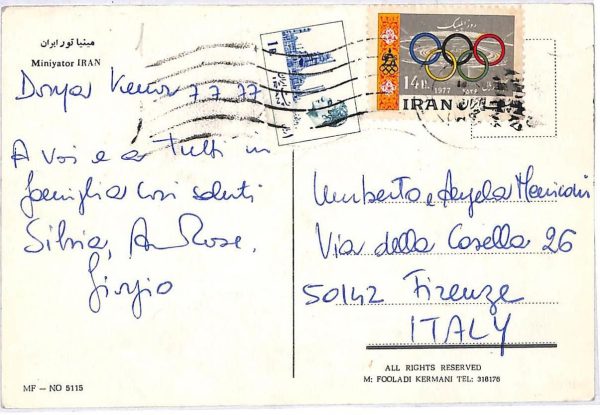 مینیاتور ایران
Miniyator IRAN
7 7 77
A voi e a tutti in
famiglia cari saluti
Silvia, AnnRose,
Giorgio
MF – NO 5115
1R.
روز المپیک
14R.
1977
۲۵۳۶
IRAN
Umberto e Angela
Via della Casella 26
50142 Firenze
ITALY
ALL RIGHTS RESERVED
M: FOOLADI KERMANI TEL: 316176